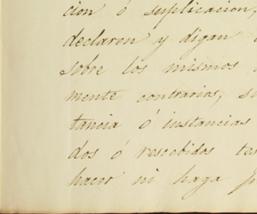 cion ó suplicacion,
declaren y digan
sobre los mismos
mente contrarias, si
tancia ó instancias
dos ó rescebidos tes
hacer ni haga